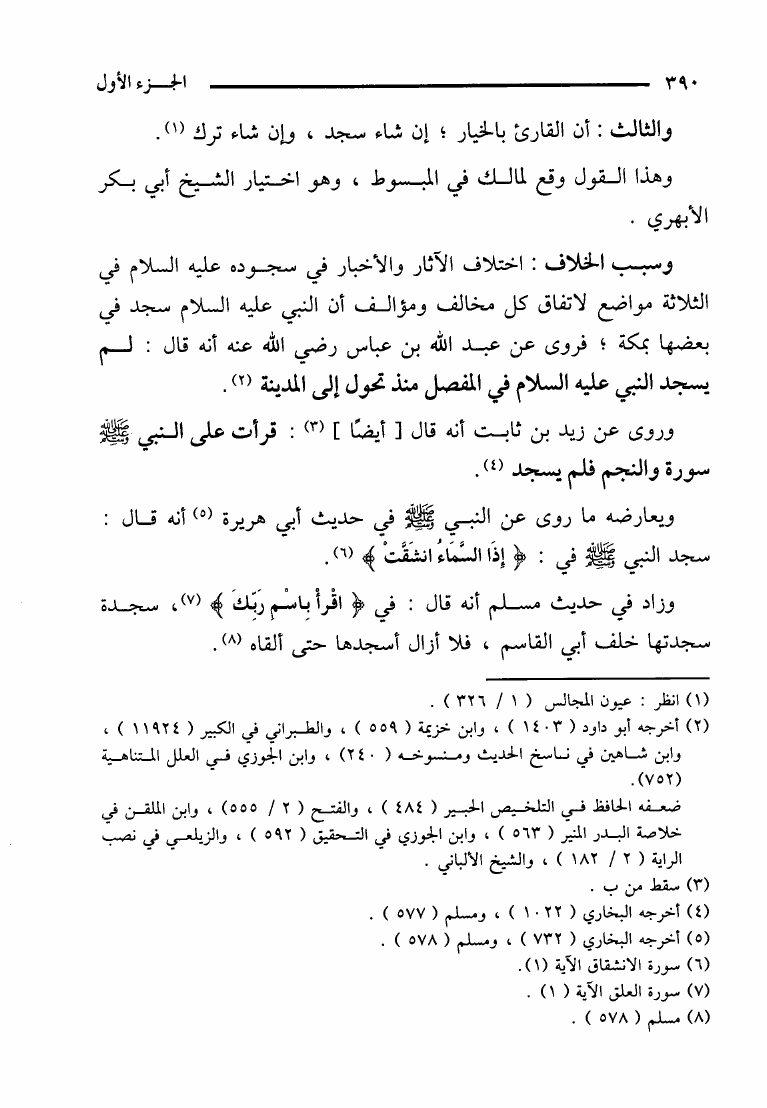 ٣٩٠ الجـــزء الأول
والثالث : أن القارئ بالخيار ؛ إن شاء سجد ، وإن شاء ترك (١) .
وهذا القول وقع لمالك في المبسوط ، وهو اختيار الشيخ أبي بكر
الأبهري .
وسبب الخلاف : اختلاف الآثار والأخبار في سجوده عليه السلام في
الثلاثة مواضع لاتفاق كل مخالف ومؤالف أن النبي عليه السلام سجد في
بعضها بمكة ؛ فروى عن عبد الله بن عباس رضي الله عنه أنه قال : لم
يسجد النبي عليه السلام في المفصل منذ تحول إلى المدينة (٢) .
وروى عن زيد بن ثابت أنه قال [ أيضًا ] (٣) : قرأت على النبي ﷺ
سورة والنجم فلم يسجد (٤) .
ويعارضه ما روى عن النبي ﷺ في حديث أبي هريرة (٥) أنه قال :
سجد النبي ﷺ في : ﴿ إِذَا السَّمَاءُ انشَقَّتْ ﴾ (٦) .
وزاد في حديث مسلم أنه قال : في ﴿ اقْرأْ بِاسْمِ رَبِّكَ ﴾ (٧) ، سجدة
سجدتها خلف أبي القاسم ، فلا أزال أسجدها حتى ألقاه (٨) .
(١) انظر : عيون المجالس ( ١ / ٣٢٦ ) .
(٢) أخرجه أبو داود ( ١٤٠٣ ) ، وابن خزيمة ( ٥٥٩ ) ، والطبراني في الكبير ( ١١٩٢٤ ) ،
وابن شاهين في ناسخ الحديث ومنسوخه ( ٢٤٠) ، وابن الجوزي في العلل المتناهية
(٧٥٢) .
ضعفه الحافظ في التلخيص الحبير ( ٤٨٤ ) ، والفتح ( ٢ / ٥٥٥) ، وابن الملقن في
خلاصة البدر المنير ( ٥٦٣ ) ، وابن الجوزي في التحقيق ( ٥٩٢ ) ، والزيلعي في نصب
الراية ( ٢ / ١٨٢ ) ، والشيخ الألباني .
(٣) سقط من ب .
(٤) أخرجه البخاري ( ١٠٢٢ ) ، ومسلم ( ٥٧٧ ) .
(٥) أخرجه البخاري ( ٧٣٢ ) ، ومسلم ( ٥٧٨ ) .
(٦) سورة الانشقاق الآية (١) .
(٧) سورة العلق الآية ( ١) .
(٨) مسلم ( ٥٧٨ ) .